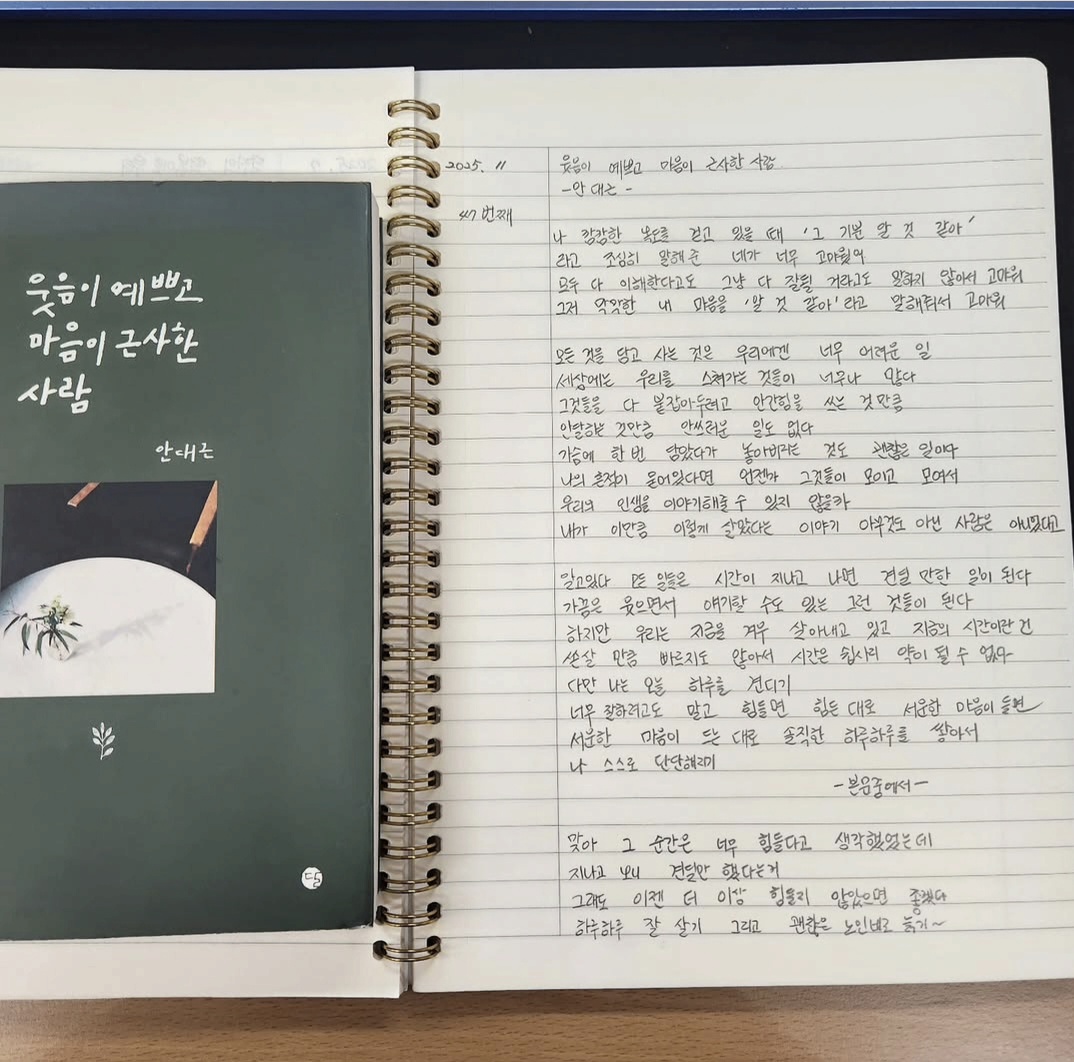 웃음이 예쁘고
마음이 근사한
사람
안대근
달
2025. 11
47번째
웃음이 예쁘고 마음이 근사한 사람
-안대근-
나 캄캄한 복도를 걷고 있을 때 '그 기분 알 것 같아'
라고 조심히 말해준 네가 너무 고마웠어
모두 다 이해한다고도 그냥 다 잘될 거라고도 말하지 않아서 고마워
그저 막막한 내 마음을 '알 것 같아'라고 말해줘서 고마워
모든 것을 담고 사는 것은 우리에겐 너무 어려운 일
세상에는 우리를 스쳐가는 것들이 너무나 많다
그것들을 다 붙잡아두려고 안간힘을 쓰는 것만큼
안달하는 것만큼 안쓰러운 일도 없다
가슴에 한번 담았다가 놓아버리는 것도 괜찮은 일이다
나의 흔적이 묻어있다면 언젠가 그것들이 모이고 모여서
우리의 인생을 이야기해줄 수 있지 않을까
내가 이만큼 이렇게 살았다는 이야기 아무것도 아닌 사람은 아니었다고
알고있다 모든 일들은 시간이 지나고 나면 견딜 만한 일이 된다
가끔은 웃으면서 얘기할 수도 있는 그런 것들이 된다
하지만 우리는 지금을 겨우 살아내고 있고 지금의 시간이란 건
쏜살 만큼 빠르지도 않아서 시간은 쉽사리 약이 될 수 없다
다만 나는 오늘 하루를 견디기
너무 잘하려고도 말고 힘들면 힘든 대로 서운한 마음이 들면
서운한 마음이 드는 대로 솔직한 하루하루를 쌓아서
나 스스로 단단해지기
-본음중에서-
맞아 그 순간은 너무 힘들다고 생각했었는데
지나고 보니 견딜만 했다는거
그래도 이젠 더 이상 힘들지 않았으면 좋겠다
하루하루 잘 살기 그리고 괜찮은 노인네로 늙기~